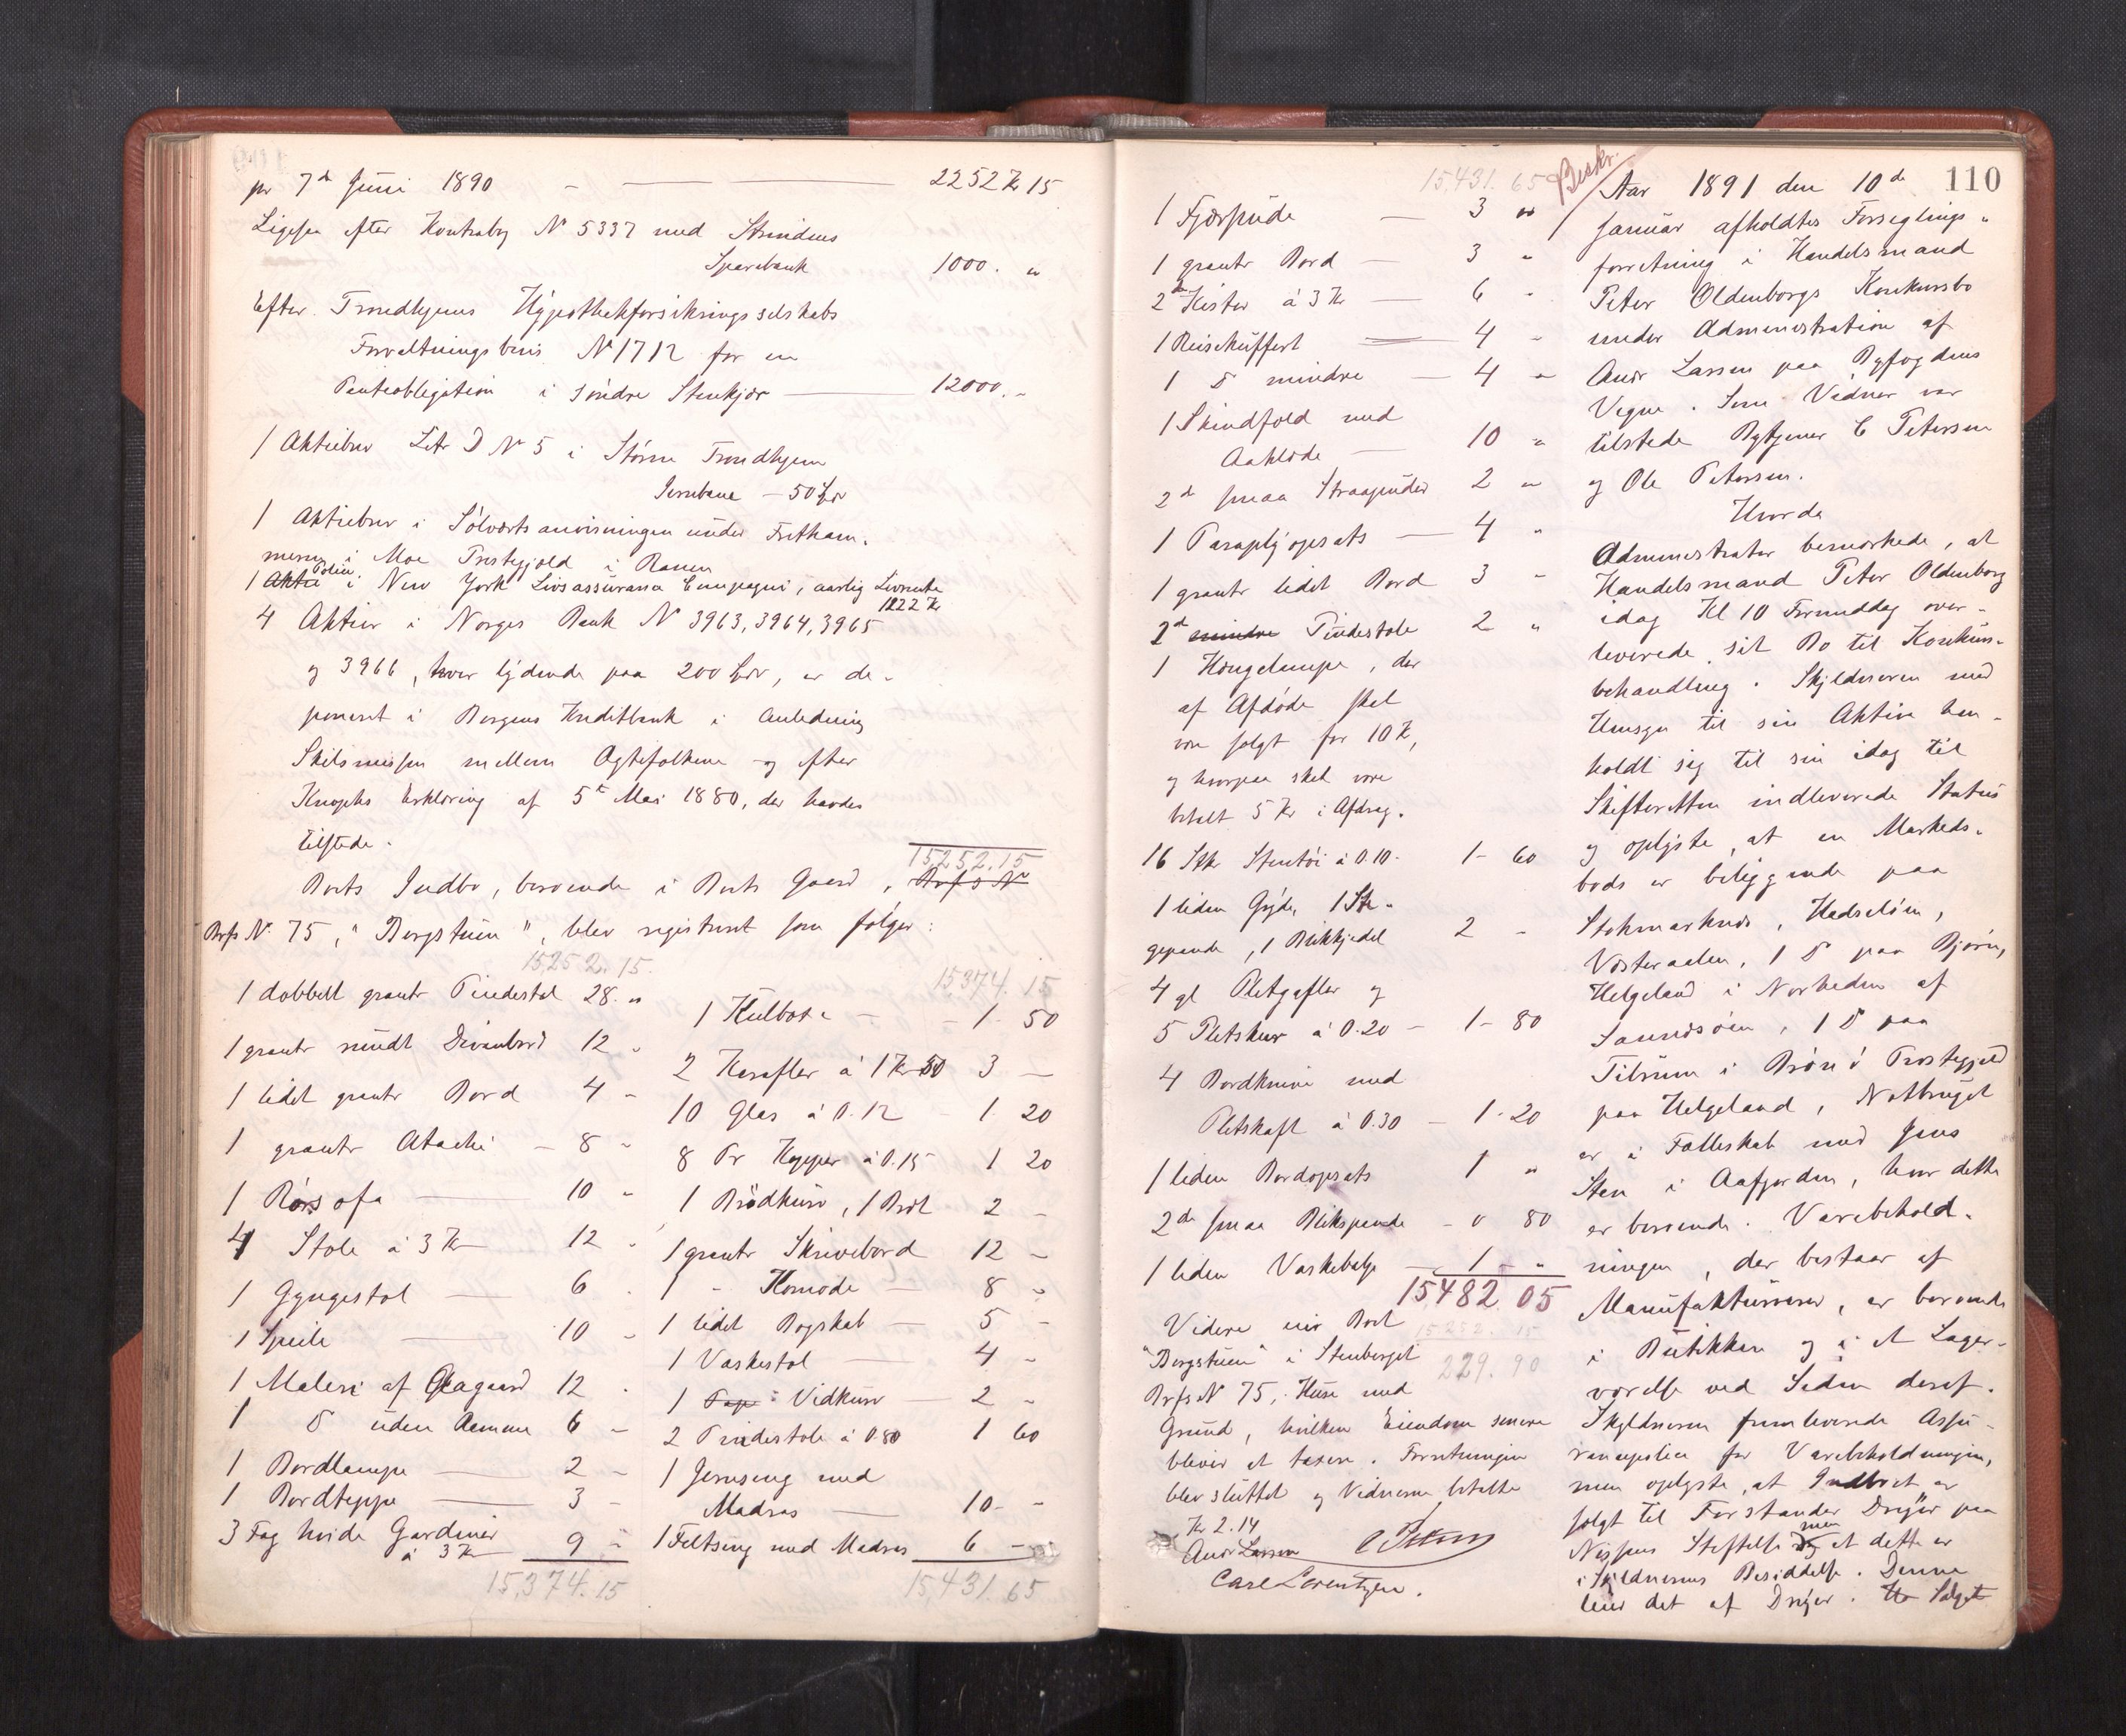 pr 7de Juni 1890 - — 2252 Kr 15
Ligesaa efter Kontrabog N 5337 med Strindens
Sparebank 1000. "
Efter Trondhjems Hypothekforsikringsselskabs
Forvaltningsbevis N 1712 for en
Panteobligation i søndre Stenkjær — 12000. -
1 Aktiebrev Litr D N 5 i Støren Trondhjem
Jernbane - 50 Spd
1 Aktiebrev i Sølverts anvisningen under Fritham-
meren i Moe Præstegjeld i Ranen
1 Aktie Police i New York Livsassurance Compagni, aarlig Livrente
1222 Kr
4 Aktier i Norges Bank N 3963, 3964, 3965
og 3966, hver lydende paa 200 Spd, er de-
poneret i Bergens Kreditbank i Anledning
Skilsmissen mellem Ægtefolkene og efter
Erklæring af 5te Mai 1880, der havdes
tilstede.
15,252.15
Boets Indbo, beroende i Boets Gaard, Brfs N
Brfs N. 75, "Bergstuen", blev registreret som følger:
15,252.15.
1 dobbelt grantr Pindestol 28. "
1 grantr rundt Divanbord 12 "
1 lidet grantr Bord 4 -
1 grantr Atache - 8 "
1 Rørsofa — 10 "
4 Stole á 3 Kr 12 -
1 Gyngestol — 6 -
1 Speile — 10 -
1 Maleri af Aagaard 12 -
1 D uden Ramme 6 -
1 Bordlampe — 2 -
1 Bordteppe — 3 -
3 Fag hvide Gardiner
á 3 Kr 9 -
15,374.15
15,374.15
1 Kulbox - - 1. 50
2 Karafler á 1 Kr 50 3 —
10 Glas á 0.12 - 1. 20
8 Pr Kopper á 0.15 1 20
1 Brødkurv, 1 Bret 2 -
1 grantr Skrivebord 12 -
1 - Komode - 8 -
1 lidet Bogskab — 5 -
1 Vaskestol — 4 -
1 Vidkurv - 2 -
2 Pindestole á 0.80 1 60
1 Jernseng med
Madras — 10 - -
1 Feltseng med Madras 6 -
15,431.65
15,431.65
1 Fjærpude — 3 "
1 grantr Bord — 3 "
2de Kister á 3 Kr — 6 -
1 Reisekuffert — 4 -
1 D mindre — 4 "
1 Skindfeld med
Aaklæde — 10 "
2de smaa Straapuder 2 "
1 Paraplyopsats — 4 "
1 grantr lidet Bord 3 -
2de mindre Pindestole 2 "
1 Hængelampe, der
af Afdøde skal
være solgt for 10 Kr,
og hvorpaa skal være
betalt 5 Kr i Afdrag.
16 Stk Stentøi á 0.10. 1 - 60
1 liden Gryde, 1 Ste-
gepande, 1 Blikkjedel 2 -
4 gl Pletgafler og
5 Pletskeer á 0.20 - 1 - 80
4 Bordknive med
Pletskaft á 0.30 - 1 - 20
1 liden Bordopsats 1 "
2de smaa Blikspande - 0 80
1 liden Vaskebalje - 1 - "
15,482.05
15252.15
229.90
Videre eier Boet
"Bergstuen" i Stenberget
Brfs N 75, Huse med
Grund, hvilken Eiendom senere
bliver at taxere. Forretningen
blev sluttet og Vidnerne betalte
Kr 2.14
Andr Larsen C Petersen
Carl Lorentzen.
Beskr. 110
Aar 1891 den 10de
Januar afholdtes Forseglings-
forretning i Handelsmand
Peter Oldenborgs Konkursbo
under Administration af
Andr Larsen paa Byfogdens
Vegne. Som Vidner var
tilstede Bytjener C Petersen
og Ole Petersen.
Hvorda
Administrator bemærkede, at
Handelsmand Peter Oldenborg
idag Kl 10 Formiddag over-
leverede sit Bo til Konkurs-
behandling. Skyldneren med
Hensyn til sin Aktiva hen-
holdt sig til sin idag til
Skifteretten indleverede Status
og oplyste, at en Markeds-
bod er beliggende paa
Stokmarknes, Hadseløen,
Vesteraalen, 1 D paa Bjørn,
Helgeland i Nærheden af
Sannesøen, 1 D paa
Tilrum i Brønø Præstegjeld
paa Helgeland, Notbruget
er i Fælleskab med Jens
Sten i Aafjorden, hvor dette
er beroende. Varebehold-
ningen, der bestaar af
Manufakturvarer, er beroende
i Butikken og i et Lager-
værelse ved Siden deraf.
Skyldneren fremleverede Assu-
rancepolice for Varebeholdningen,
men oplyste, at Indboet er
solgt til Forstander Dreyer paa
Nissens Stiftelse og men at dette er
i Skyldnerens Besiddelse. Denne
leier det af Dreyer. Salget